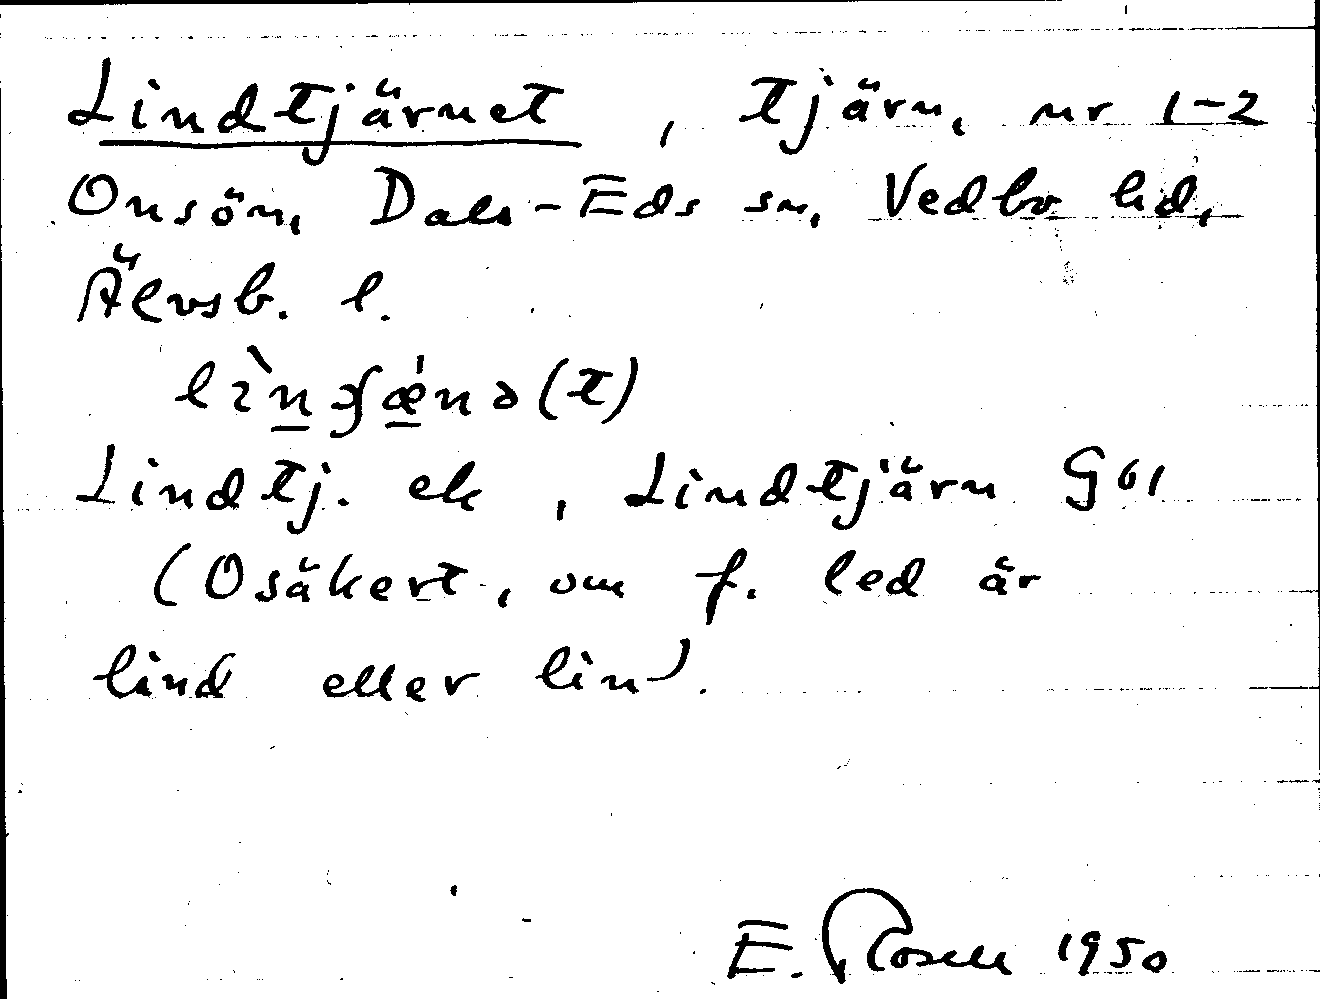 Lindtjärnet, tjärn, nr 1-2
Onsön, Dals-Eds sn, Vedbo hd,
Älvsb. l.
Lindtj. ek, Lindtjärn G61
(Osäkert, om f. led är
lind eller lin).
E. Rosell 1950